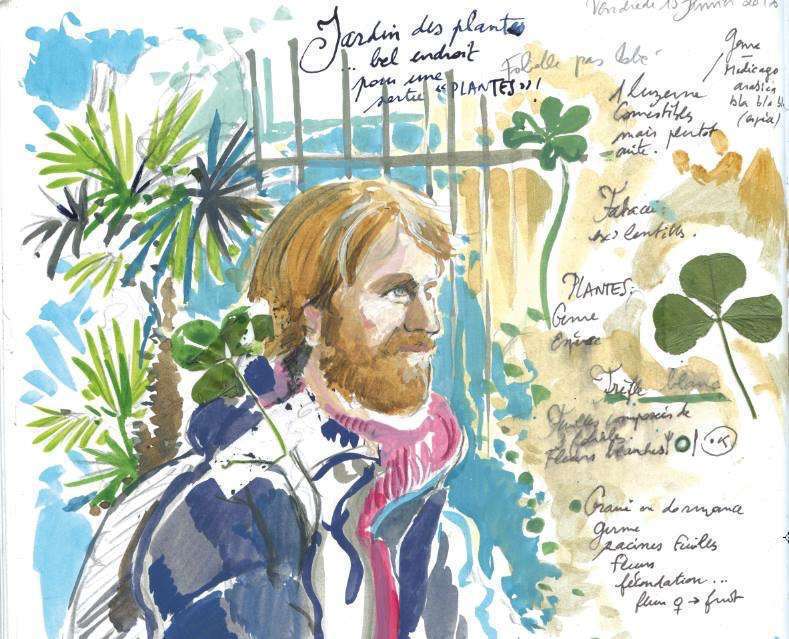 Vendredi 15 Janvier 201
Jardin des plantes
... bel endroit
pour une
sortie "PLANTES"!
Foliolle pas lobé
1 luzerne
Comestibles
mais plutot
cuite.
genre
Medicago
arabica
bla bla bla
(espèce)
ex: lentilles.
PLANTES:
Genre
Espèce
Trèfle blanc
Feuilles composées de
3 folioles
Fleurs blanches
OK
Graine en dormance
germe
racines
fleurs
fécondation...
fleur ♀ → fruit